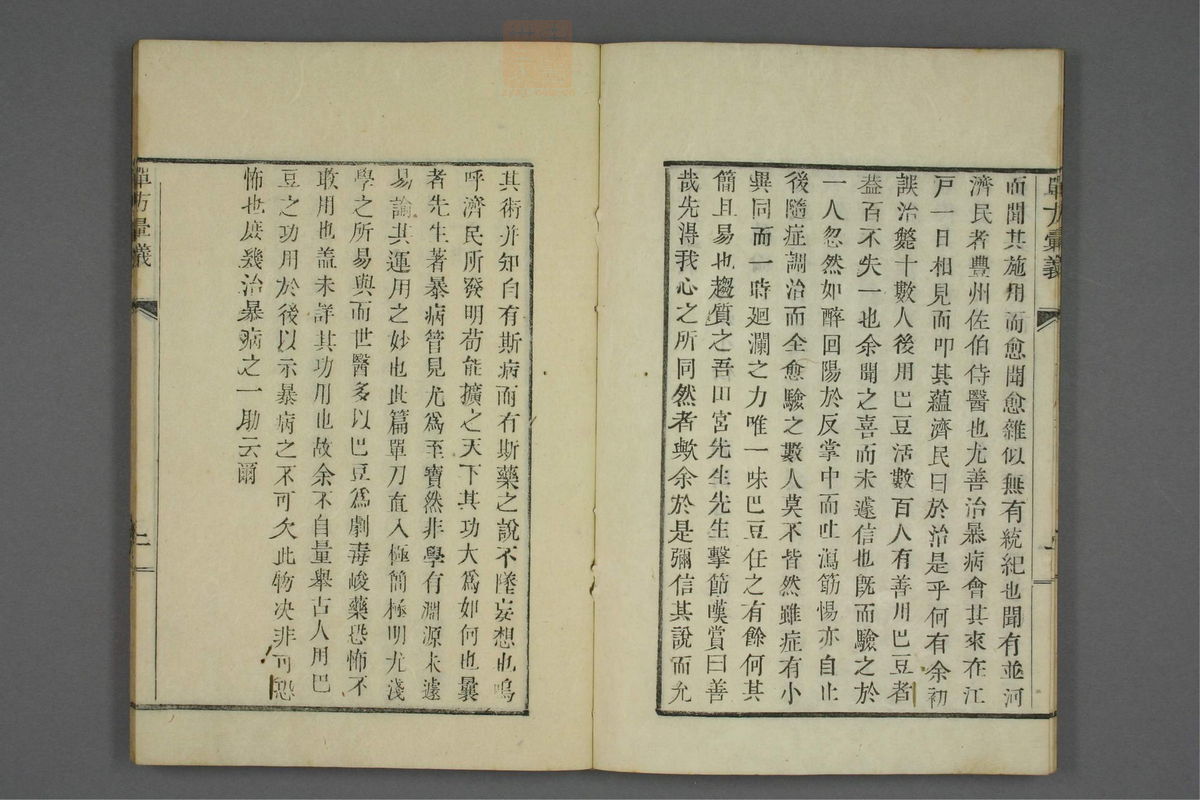 而聞其施用而愈聞愈雜似無有統紀也聞有並河
濟民者豊州佐伯侍醫也尤善治暴病會其來在江
戸一日相見而叩其蘊濟民曰於治是乎何有余初
誤治斃十數人後用巴豆活數百人有善用巴豆者
葢百不失一也余聞之喜而未遽信也既而驗之於
一人忽然如醉回陽於反掌中而吐瀉筋惕亦自止
後隨症調治而全愈驗之數人莫不皆然雖症有小
異同而一時廻瀾之力唯一味巴豆任之有餘何其
簡且易也趨質之吾田宮先生先生擊節嘆賞曰善
哉先得我心之所同然者歟余於是彌信其說而允
其術并知自有斯病而有斯藥之說不墜妄想也嗚
呼濟民所發明苟能擴之天下其功大爲如何也曩
者先生著暴病管見尤爲至寶然非學有淵源未遽
易諭其運用之妙也此篇單刀直入極簡極明尤淺
學之所易與而世醫多以巴豆爲劇毒峻藥恐怖不
敢用也盖未詳其功用也故余不自量舉古人用巴
豆之功用於後以示暴病之不可欠此物决非可恐
怖也庶幾治暴病之一助云爾
單方彙義
二